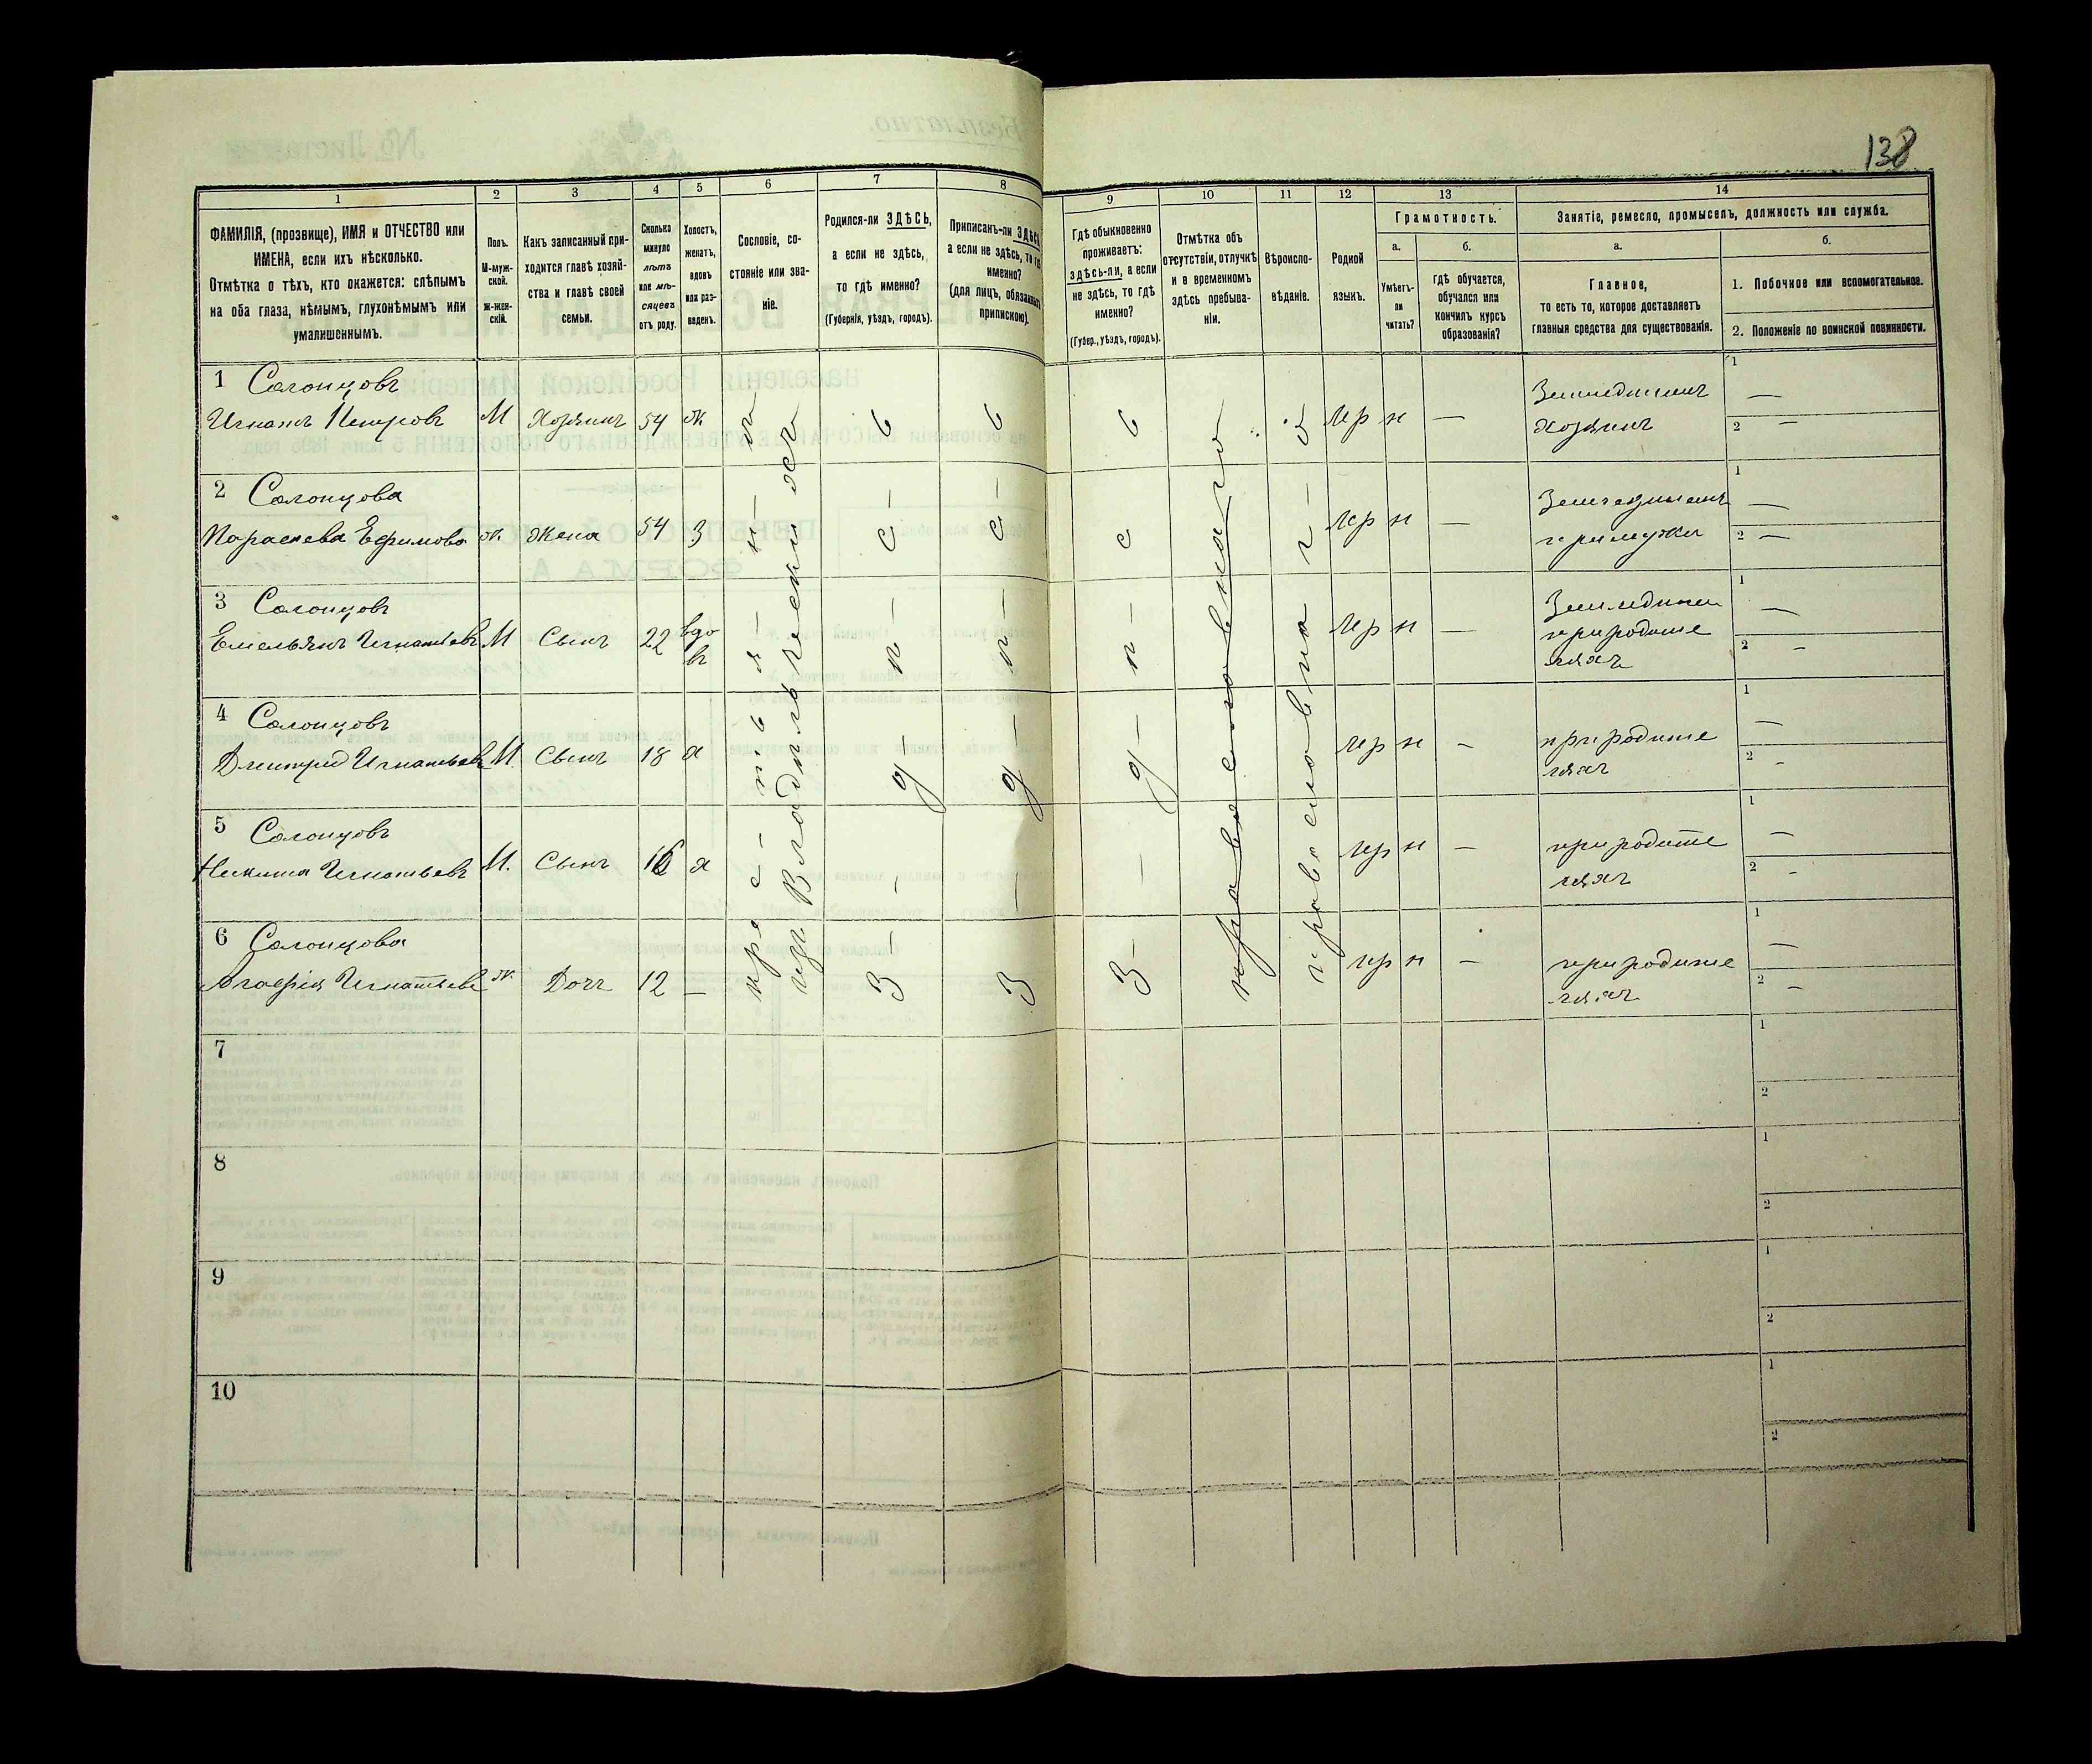 138
1 2 3 4 5 6 7 8 9 10 11 12 13 14
ФАМИЛІЯ, (прозвище), ИМЯ и ОТЧЕСТВО или
ИМЕНА, если ихъ нѣсколько.
Отмѣтка о тѣхъ, кто окажется: слѣпымъ
на оба глаза, нѣмымъ, глухонѣмымъ или
умалишеннымъ.
Полъ.
М-муж-
ской.
Ж-жен-
скій.
Какъ записанный при-
ходится главѣ хозяй-
ства и главѣ своей
семьи.
Сколько
минуло
лѣтъ
или мѣ-
сяцевъ
отъ роду.
Холостъ,
женатъ,
вдовъ
или раз-
веденъ.
Сословіе, со-
стояніе или зва-
ніе.
Родился-ли ЗДѢСЬ,
а если не здѣсь,
то гдѣ именно?
(Губернія, уѣздъ, городъ).
Приписанъ-ли ЗДѢСЬ
а если не здѣсь, то гдѣ
именно?
(для лицъ, обязанныхъ
припискою).
Гдѣ обыкновенно
проживаетъ:
здѣсь-ли, а если
не здѣсь, то гдѣ
именно?
(Губер., уѣздъ, городъ).
Отмѣтка объ
отсутствіи, отлучкѣ
и о временномъ
здѣсь пребыва-
ніи.
Вѣроиспо-
вѣданіе.
Родной
языкъ.
Грамотность.
а.
Умѣетъ-
ли
читать?
б.
Гдѣ обучается,
обучался или
кончилъ курсъ
образованія?
Занятіе, ремесло, промыселъ, должность или служба.
а.
Главное,
то есть то, которое доставляетъ
главныя средства для существованія.
б.
1. Побочное или вспомогательное.
2. Положеніе по воинской повинности.
1 Солонцовъ
Игнатъ Петровъ М Хозяинъ 54 ж
н —
хозяинъ
1 —
2 —
2 Солонцова
Параскева Ефимова ж жена 54 З
н —
1 —
2 —
3 Солонцовъ
Емельянъ Игнатьевъ М Сынъ 22 вдо
въ
н —
при родите
ляхъ
1 —
2 —
4 Солонцовъ
Дмитрій Игнатьевъ М Сынъ 18 х
н —
при родите
ляхъ
1 —
2 —
5 Солонцовъ
Никита Игнатьевъ М. Сынъ 16 х
н —
при родите
ляхъ
1 —
2 —
6 Солонцова
Агафія Игнатьева ж Дочь 12 —
н —
при родите
ляхъ
1 —
2 —
кре-с-тья-н-нъ
изъ Владѣльческихъ
З-д-п-с-ь
З-д-п-с-ь
З-д-п-с-ь
православнаго
7
1
2
8
1
2
9
1
2
10
1
2